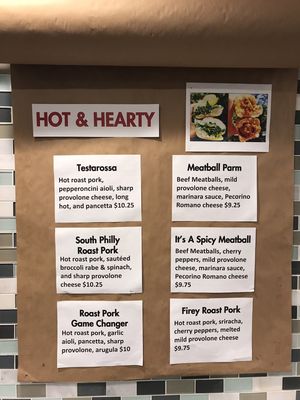 HOT & HEARTY
Testarossa
Hot roast pork,
pepperoncini aioli, sharp
provolone cheese, long
hot, and pancetta $10.25
Meatball Parm
Beef Meatballs, mild
provolone cheese,
marinara sauce, Pecorino
Romano cheese $9.25
South Philly
Roast Pork
Hot roast pork, sautéed
broccoli rabe & spinach,
and sharp provolone
cheese $10.25
It's A Spicy Meatball
Beef Meatballs, cherry
peppers, mild provolone
cheese, marinara sauce,
Pecorino Romano cheese
$9.75
Roast Pork
Game Changer
Hot roast pork, garlic
aioli, pancetta, sharp
provolone, arugula $10
Firey Roast Pork
Hot roast pork, sriracha,
cherry peppers, melted
mild provolone cheese
$9.75